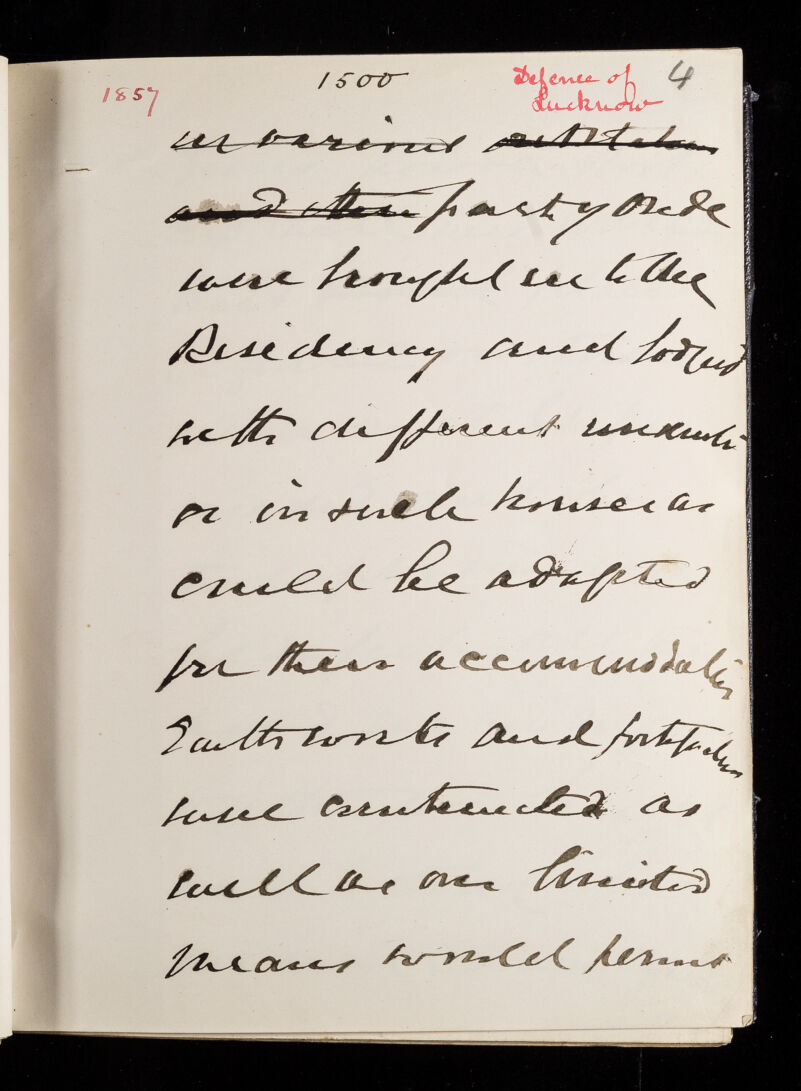 1857 1500 Defence of 4
Lucknow
in various
and their party
were brought in to the
Residency and lodged
with different
or in such houses as
could be adapted
for their accommodation
Earthworks and fortification
were constructed as
well as our limited
means would permit